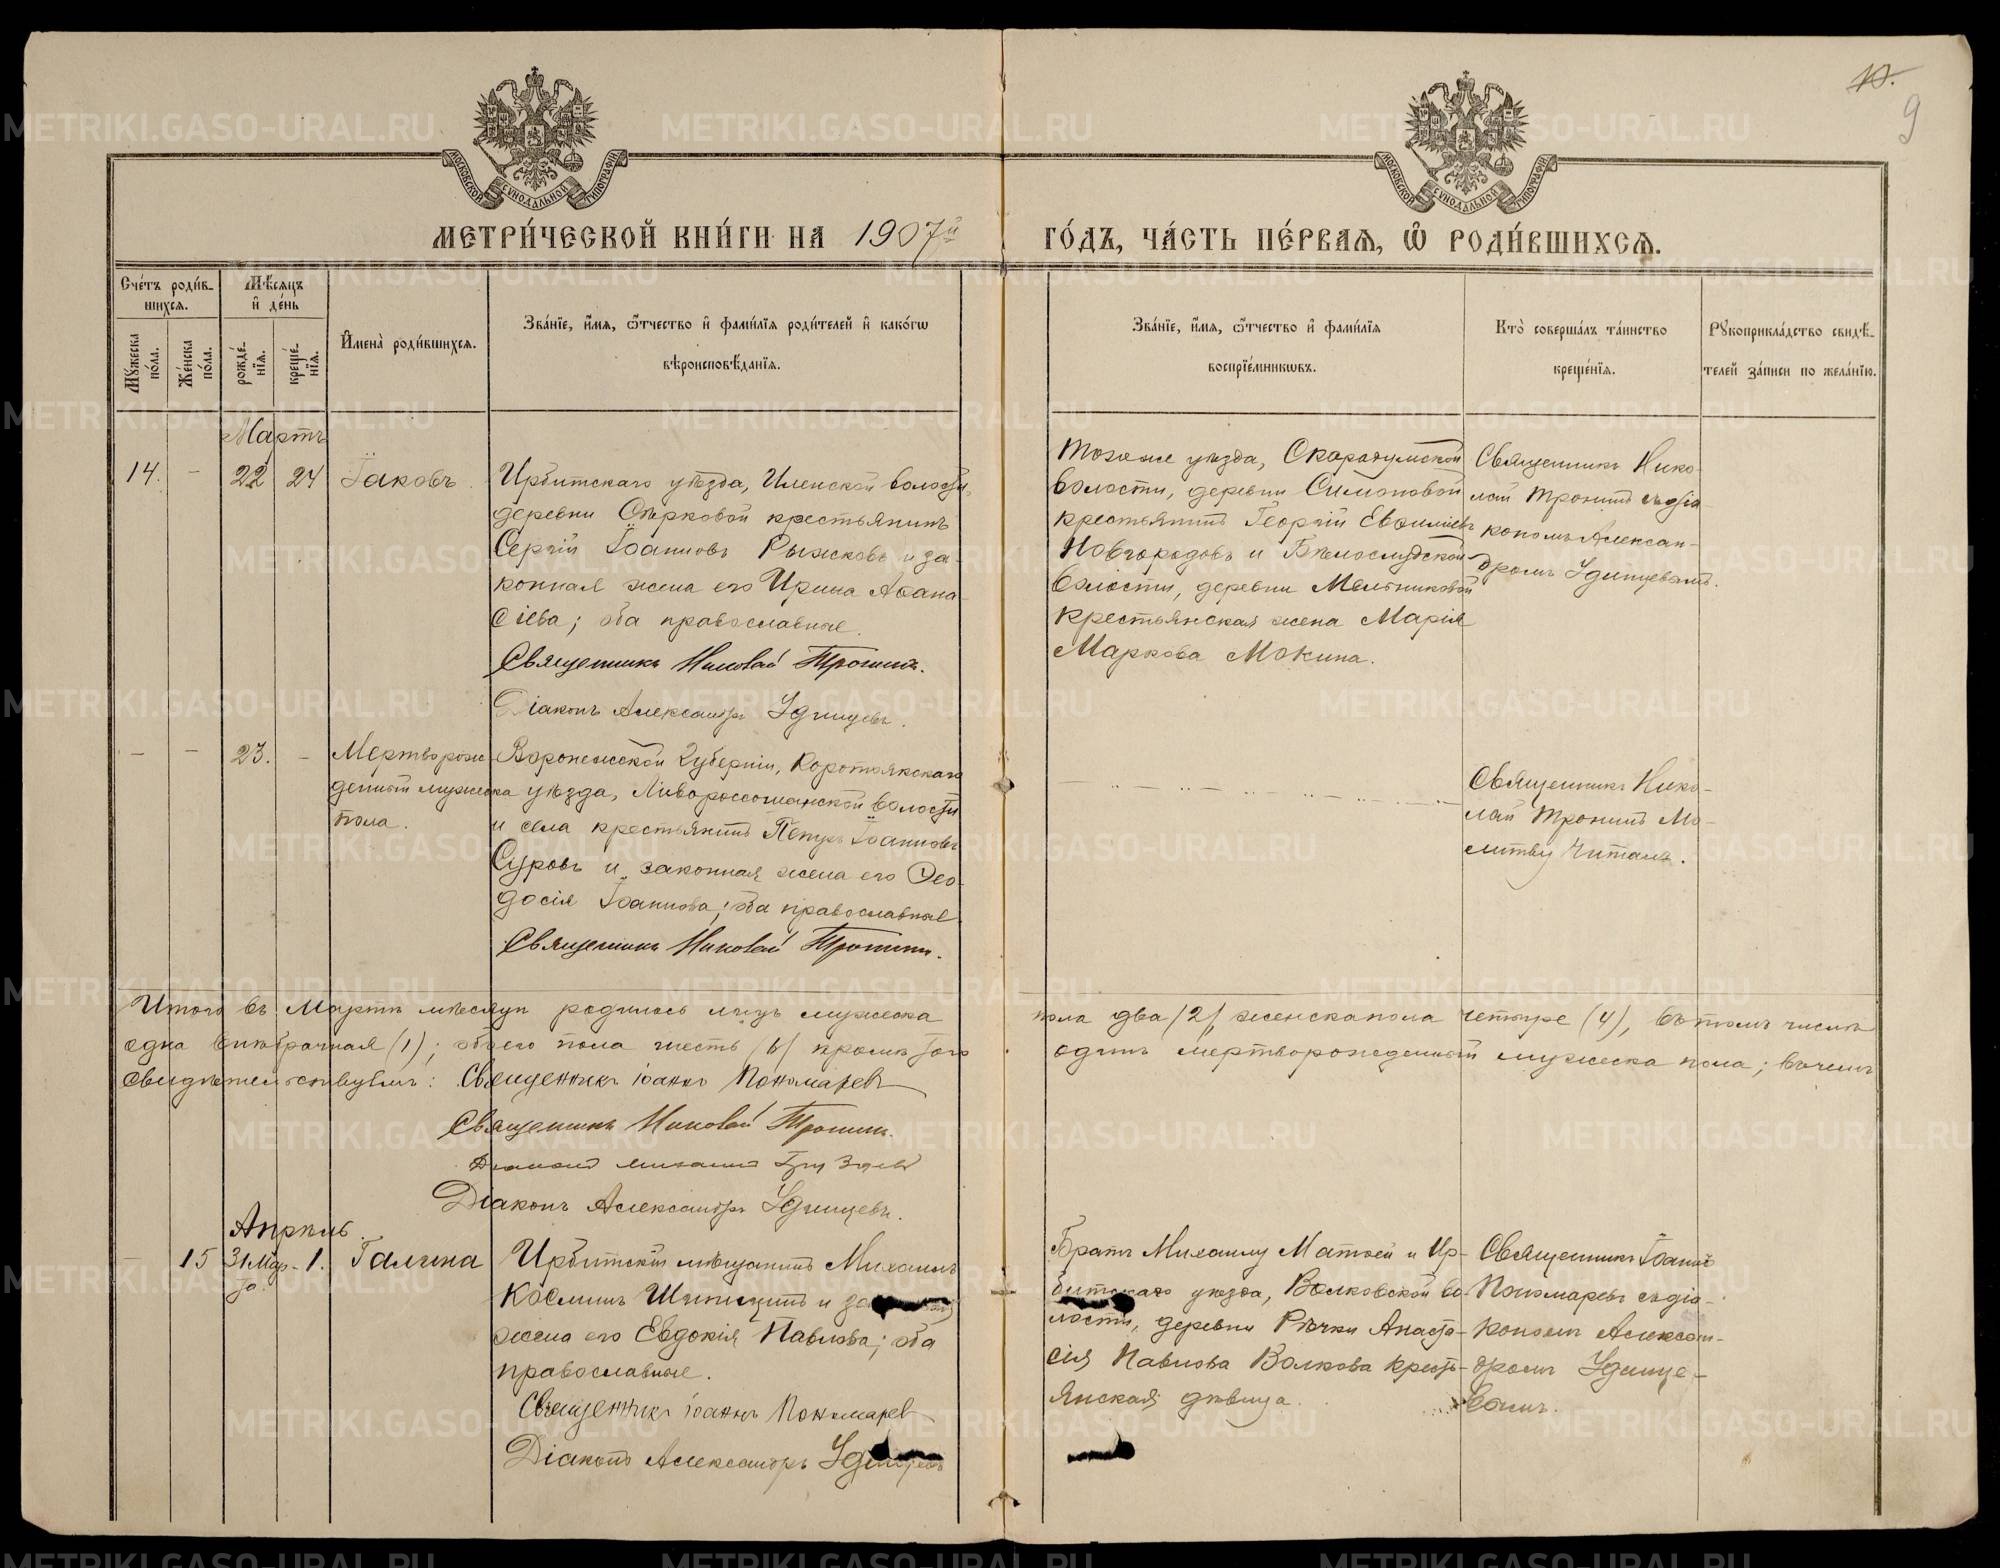 10.
9
МОСКОВСКОЙ СѴНОДАЛЬНОЙ ТИПОГРАФІИ
МОСКОВСКОЙ СѴНОДАЛЬНОЙ ТИПОГРАФІИ
МЕТРИ́ЧЕСКОЙ КНИ́ГИ НА 1907й
ГО́ДЪ, ЧА́СТЬ ПЕ́РВАѦ, Ѽ РОДИ́ВШИХСѦ.
Сче́тъ роди́в-
шихсѧ.
Мѣ́сѧцъ
и҆ де́нь
Мꙋ́жеска по́ла.
Же́нска по́ла.
рожде́-нїѧ.
креще́-нїѧ.
И҆мена̀ роди́вшихсѧ.
Зва́нїе, и҆́мѧ, ѻ҆́тчество и҆ фами́лїѧ роди́телей и҆ како́гѡ
вѣроисповѣ́данїѧ.
Зва́нїе, и҆́мѧ, ѻ҆́тчество и҆ фами́лїѧ
воспрїе́мникѡвъ.
Кто̀ соверша́лъ та́инство
креще́нїѧ.
Рꙋкоприкла́дство свидѣ́-
телей за́писи по жела́нїю.
Мартъ
14. - 22 24 Іаковъ.
Ирбитскаго уѣзда, Иленской волости,
деревни Сѣрковой крестьянинъ
Сергій Іоанновъ Рыжковъ и за-
конная жена его Ирина Аѳана-
сіева; оба православные.
Священникъ Николай Тронинъ.
Діаконъ Александръ Удинцевъ.
тогоже уѣзда, Скародумской
волости, деревни Симоновой
крестьянинъ Георгій Евѳиміевъ
Новгородовъ и Бѣлослудской
волости, деревни Мельниковой
крестьянская жена Марія
Маркова Мокина.
Священникъ Нико-
лай Тронинъ съ діа-
кономъ Алексан-
дромъ Удинцевымъ.
- - 23. - Мертворож-
денный мужеска
пола.
Воронежской губерніи, Коротоякскаго
уѣзда, Ливороссошанской волости
и села крестьянинъ Петръ Іоанновъ
Суровъ и законная жена его Ѳео-
досія Іоаннова; оба православные
Священникъ Николай Тронинъ.
Священникъ Нико-
лай Тронинъ Мо-
литву читалъ.
Итого въ Мартѣ мѣсяцѣ родилось лицъ мужеска пола два (2), женска пола четыре (4), въ томъ числѣ
одна внѣбрачная (1); обоего пола шесть (6) кромѣ того одинъ мертворожденный мужеска пола; въ чемъ
свидѣтельствуемъ: Священникъ Іоаннъ Пономаревъ
Священникъ Николай Тронинъ.
Діаконъ Александръ Удинцевъ.
Апрѣль.
- 15 31 Мар-та. 1. Галина
Ирбитскій мѣщанинъ Михаилъ
Косминъ Шипицинъ и законная
жена его Евдокія Павлова; оба
православные.
Священникъ Іоаннъ Пономаревъ
Діаконъ Александръ Удинцевъ
Братъ Михаилу Матѳей и Ир-
битскаго уѣзда, Волковской во-
лости, деревни Рѣчки Анаста-
сія Павлова Волкова кресть-
янская дѣвица.
Священникъ Іоаннъ
Пономаревъ съ діа-
кономъ Алексан-
дромъ Удинце-
вымъ.
METRIKI.GASO-URAL.RU